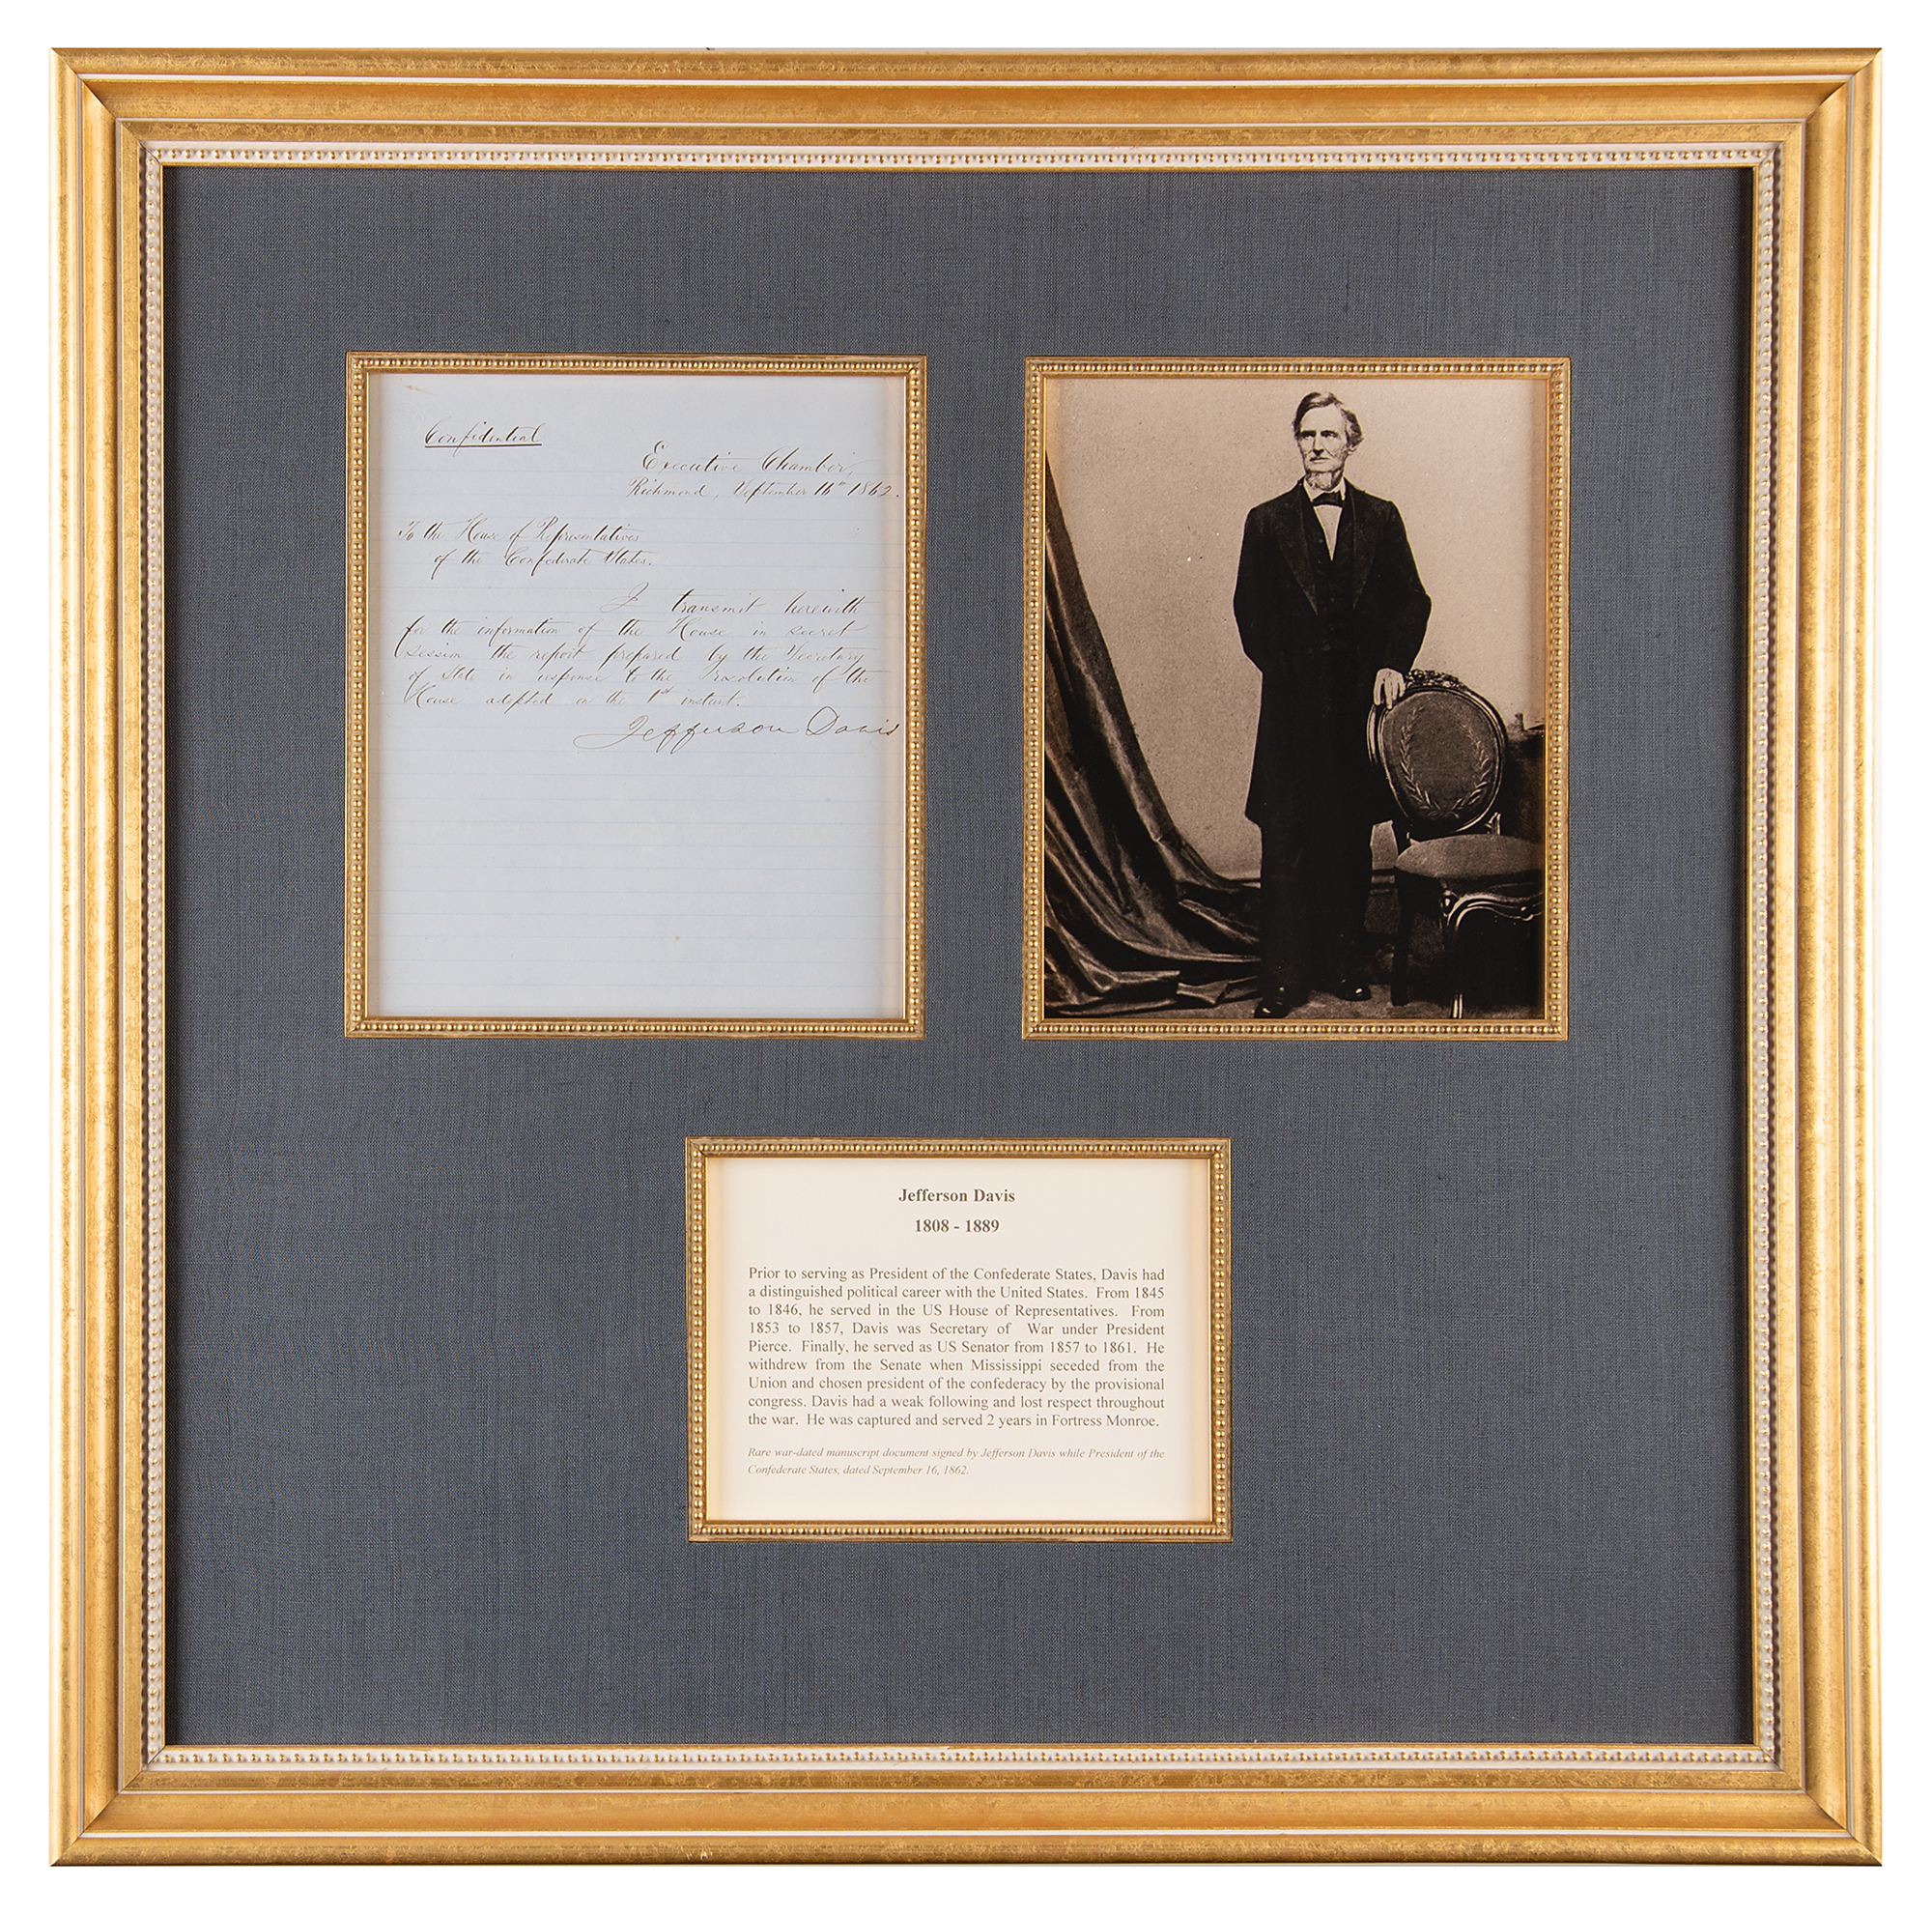 Confidential
Executive Chamber,
Richmond, September 16th 1862.
To the House of Representatives
of the Confederate States.
I transmit herewith
for the information of the House in secret
session the report prepared by the Secretary
of State in response to the resolution of the
House adopted on the 1st instant.
Jefferson Davis
Jefferson Davis
1808 - 1889
Prior to serving as President of the Confederate States, Davis had
a distinguished political career with the United States. From 1845
to 1846, he served in the US House of Representatives. From
1853 to 1857, Davis was Secretary of War under President
Pierce. Finally, he served as US Senator from 1857 to 1861. He
withdrew from the Senate when Mississippi seceded from the
Union and chosen president of the confederacy by the provisional
congress. Davis had a weak following and lost respect throughout
the war. He was captured and served 2 years in Fortress Monroe.
Rare war-dated manuscript document signed by Jefferson Davis while President of the
Confederate States, dated September 16, 1862.